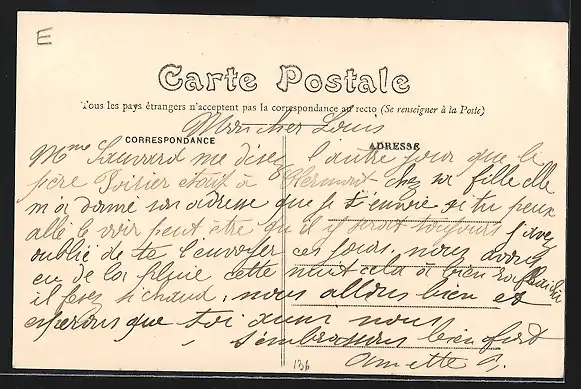 E
Carte Postale
Tous les pays étrangers n'acceptent pas la correspondance au recto (Se renseigner à la Poste)
Mon cher Louis
CORRESPONDANCE
ADRESSE
Mme Sauvard me disez l'autre jour que le
père Poisier etait à Clermont chez sa fille elle
m'a donné son adresse que je t'envoie si tu peux
allé le voir peut être qu'il y serait toujours j'avez
oublié de te l'envoyer ces jours, nous avons
eu de la pluie cette nuit cela a bien rafraichi
il fesez si chaud, nous allons bien et
esperons que toi aussi nous
t'embrassons bien fort
136